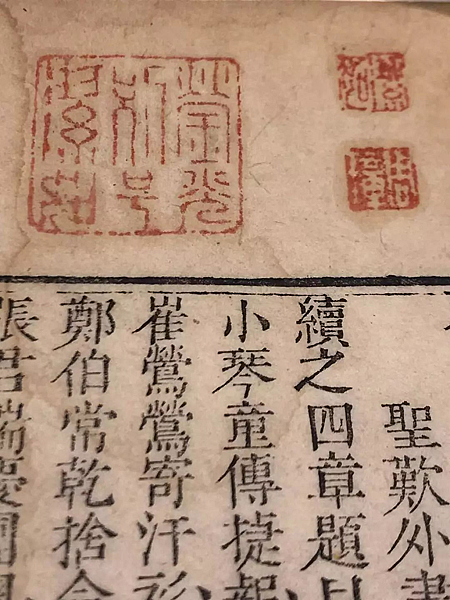 聖歎外書
續之四章題目
小琴童傳捷報
崔鶯鶯寄汗衫
鄭伯常乾捨命
張君瑞慶團圓